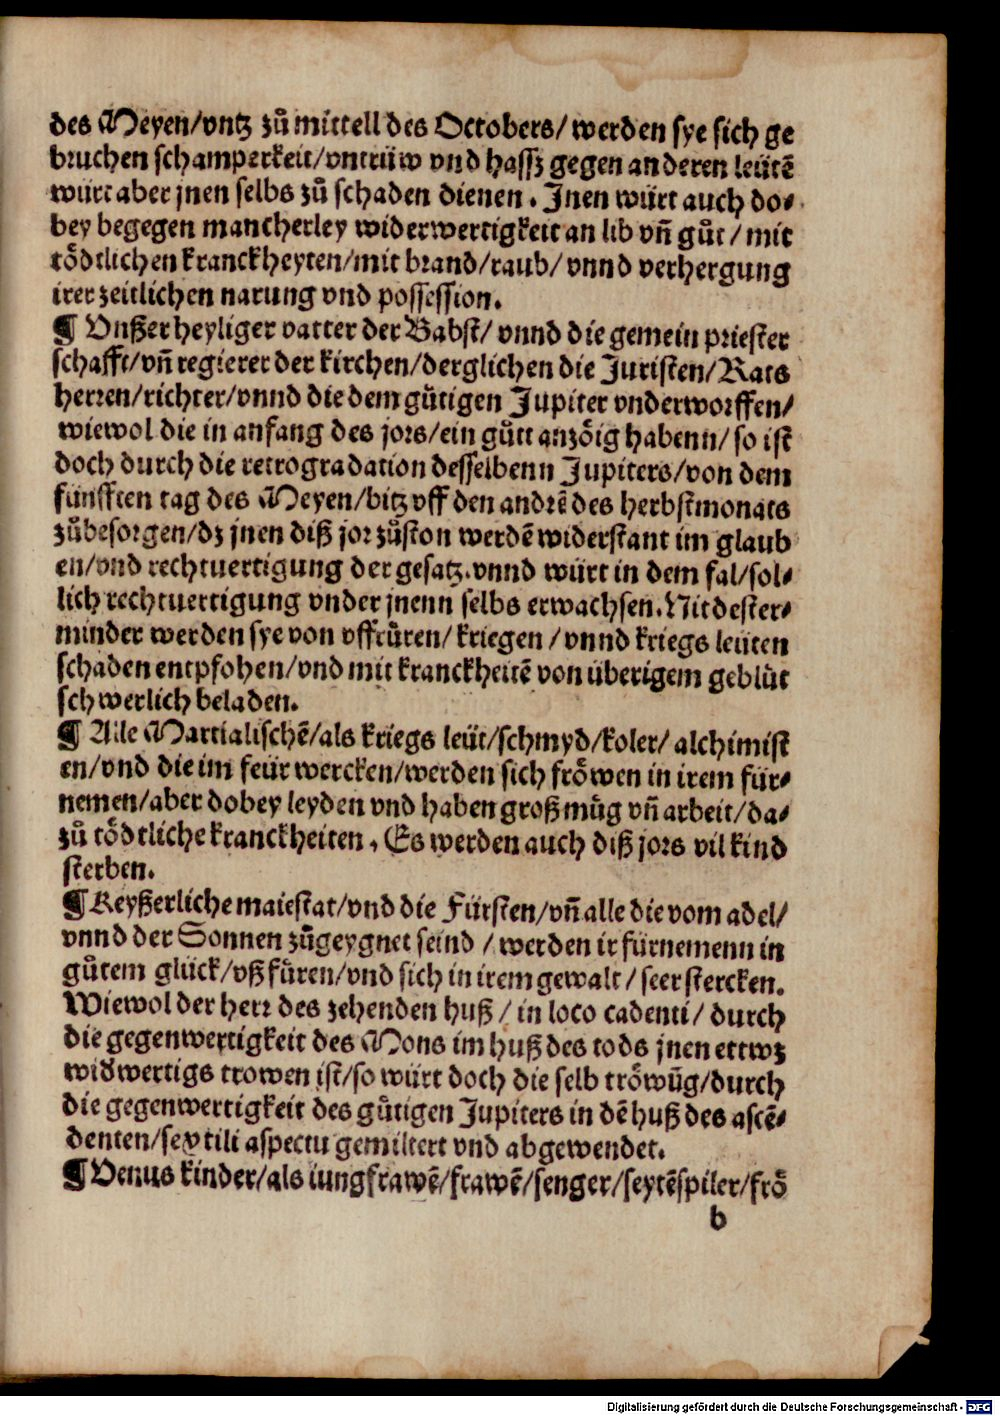 des Meyen/vntz zů mittell des Octobers/ werden sye sich ge
bruchen schamperkeit/vntrüw vnd hassz gegen anderen leütē
würt aber jnen selbs zů schaden dienen. Inen würt auch do⸗
bey begegen mancherley widerwertigkeit an lib vñ gůt / mit
tödtlichen kranckheyten/mit brand/raub/ vnnd verhergung
irer zeitlichen narung vnd possession.
¶ Vnßer heyliger vatter der Babst/ vnnd die gemein priester
schafft/vñ regierer der kirchen/derglichen die Juristen/Rats
herren/richter/vnnd die dem gůtigen Jupiter vnderworffen/
wiewol die in anfang des jors/ein gůtt anzöig habenn/so ist
doch durch die retrogradation desselbenn Jupiters/von dem
fünfften tag des Meyen/bitz vff den andrē des herbstmonats
zůbesorgen/dz jnen diß jor zůston werdē widerstant im glaub
en/vnd rechtuertigung der gesatz.vnnd würt in dem fal/sol⸗
lich rechtuertigung vnder jnenn selbs erwachsen.Nitdester⸗
minder werden sye von vffrůren/kriegen /vnnd kriegs leüten
schaden entpfohen/vnd mit kranckheitē von überigem geblůt
schwerlich beladen.
¶ Alle Martialischē/als kriegs leüt/schmyd/koler/ alchimist
en/vnd die im feür wercken/werden sich fröwen in irem für⸗
nemen/aber dobey leyden vnd haben groß müg vñ arbeit/da⸗
zů tödtliche kranckheiten. Es werden auch diß jors vil kind
sterben.
¶ Keyßerliche maiestat/vnd die Fürsten/vñ alle die vom adel/
vnnd der Sonnen zůgeygnet seind / werden ir fürnemenn in
gůtem glück/vß fůren/vnd sich in irem gewalt/ seer stercken.
Wiewol der herr des zehenden huß / in loco cadenti/ durch
die gegenwertigkeit des Mons im huß des tods jnen ettwz
widwertigs trowen ist/so würt doch die selb tröwūg/durch
die gegenwertigkeit des gůtigen Jupiters in dē huß des ascē⸗
denten/sextili aspectu gemiltert vnd abgewendet.
¶ Venus kinder/als iungfrawē/frawē/senger/seytēspiler/frö
b
Digitalisierung gefördert durch die Deutsche Forschungsgemeinschaft - DFG